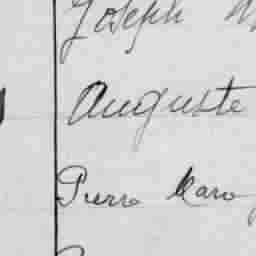 Joseph
Auguste
Pierre